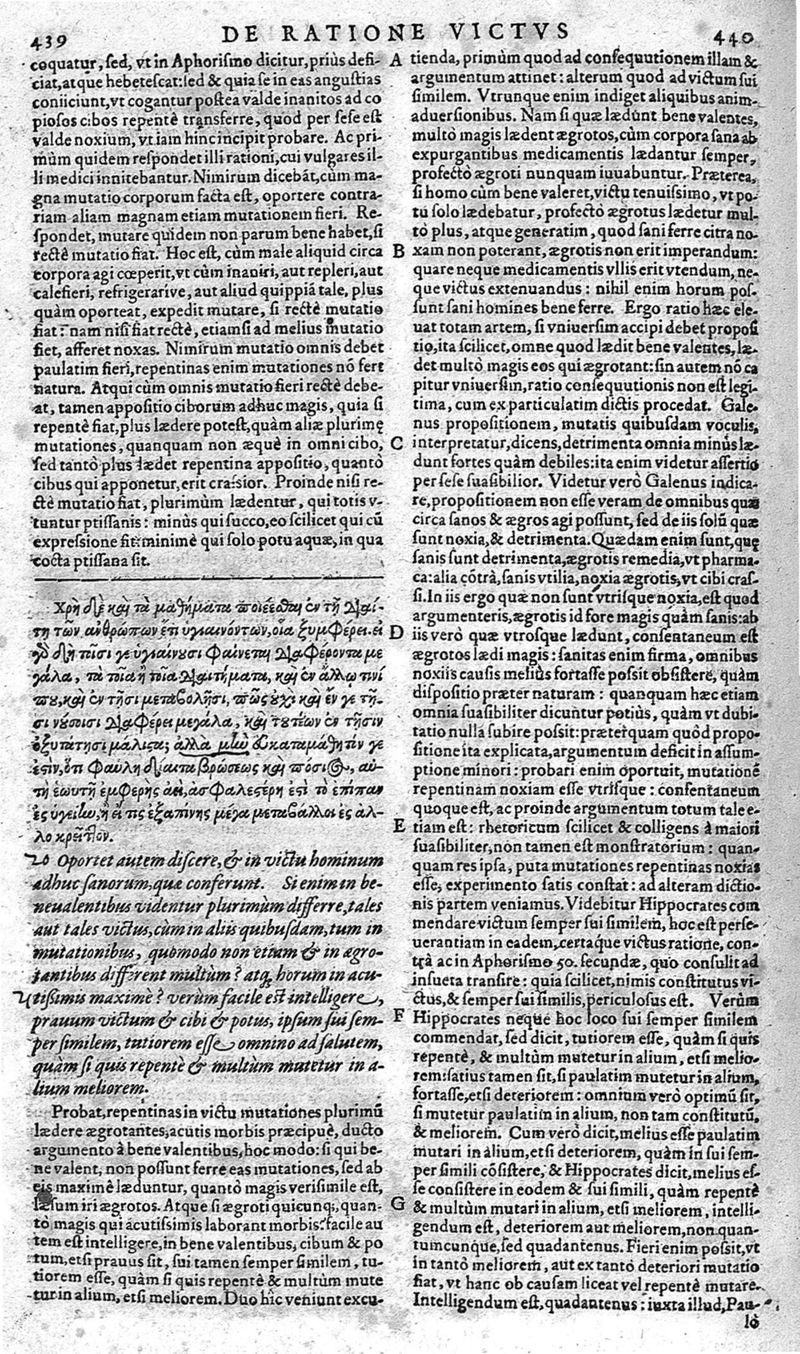 439
DE RATIONE VICTVS
440
coquatur, sed, vt in Aphorismo dicitur, prius defi-
ciat, atque hebetescat: sed & quia se in eas angustias
coniiciunt, vt cogantur postea valde inanitos ad co
piosos cibos repentè transferre, quod per sese est
valde noxium, vt iam hinc incipit probare. Ac pri-
mùm quidem respondet illi rationi, cui vulgares il-
li medici innitebantur. Nimirum dicebāt, cùm ma-
gna mutatio corporum facta est, oportere contra-
riam aliam magnam etiam mutationem fieri. Re-
spondet, mutare quidem non parum bene habet, si
rectè mutatio fiat. Hoc est, cùm male aliquid circa
corpora agi cœperit, vt cùm inaniri, aut repleri, aut
calefieri, refrigerarive, aut aliud quippiā tale, plus
quàm oporteat, expedit mutare, si rectè mutatio
fiat: nam nisi fiat rectè, etiamsi ad melius mutatio
fiet, afferet noxas. Nimirum mutatio omnis debet
paulatim fieri, repentinas enim mutationes nō fert
natura. Atqui cùm omnis mutatio fieri rectè debe-
at, tamen appositio ciborum adhuc magis, quia si
repentè fiat, plus lædere potest, quàm aliæ plurimę
mutationes, quanquam non æquè in omni cibo,
sed tantò plus lædet repentina appositio, quantò
cibus qui apponetur, erit crassior. Proinde nisi re-
ctè mutatio fiat, plurimùm lædentur, qui totis v-
tuntur ptissanis: minùs qui succo, eo scilicet qui cū
expressione fit: minimè qui solo potu aquæ, in qua
cocta ptissana sit.
Χρὴ δὲ καὶ τὰ μαθήματα ποιέεσθαι ἐν τῇ διαί-
τῃ τῶν ἀνθρώπων ἔτι ὑγιαινόντων, οἷα ξυμφέρει. εἰ
γὸ δὴ πᾶσι γε ὑγιαίνουσι φαίνεται διαφέροντα με
γάλα, τὰ τοῖα ἢ τοῖα διαιτήματα, καὶ ἐν ἄλλῳ τινί
που, καὶ ἐν τῇσι μεταβολῇσι, πῶς οὐχὶ καὶ ἔν γε τῇ-
σι νούσοισι διαφέρει μεγάλα, καὶ τουτέων ἐν τῇσιν
ὀξυτάτῃσι μάλιστα; ἀλλὰ μὴν εὐκαταμάθητόν γε
ἐστιν, ὅτι φαύλη δίαιτα βρώσιος καὶ πόσιος, αὐ-
τὴ ἑωυτῇ ἐμφερὴς ἀεὶ, ἀσφαλεστέρη ἐστὶ τὸ ἐπίπαν
ἐς ὑγείην, ἢ εἴ τις ἐξαπίνης μέγα μεταβάλλοι ἐς ἄλ-
λο κρεῖττον.
Oportet autem discere, & in victu hominum
adhuc sanorum, quæ conferunt. Si enim in be-
neualentibus videntur plurimùm differre, tales
aut tales victus, cùm in aliis quibusdam, tum in
mutationibus, quomodo non etiam & in ægro-
tantibus different multùm? atq; horum in acu-
tißimis maximè? verùm facile est intelligere,
prauum victum & cibi & potus, ipsum sui sem-
per similem, tutiorem esse omnino ad salutem,
quàm si quis repentè & multùm mutetur in a-
lium meliorem.
Probat, repentinas in victu mutationes plurimū
lædere ægrotantes, acutis morbis præcipuè, ducto
argumento à bene valentibus, hoc modo: si qui be-
ne valent, non possunt ferre eas mutationes, sed ab
eis maximè læduntur, quantò magis verisimile est,
læsum iri ægrotos. Atque si ægroti quicunq;, quan-
tò magis qui acutissimis laborant morbis? facile au
tem est intelligere, in bene valentibus, cibum & po
tum, etsi prauus sit, sui tamen semper similem, tu-
tiorem esse, quàm si quis repentè & multùm mute
tur in alium, etsi meliorem. Duo hîc veniunt excu-
A tienda, primùm quod ad consequutionem illam &
argumentum attinet: alterum quod ad victum sui
similem. Vtrunque enim indiget aliquibus anim-
aduersionibus. Nam si quæ lædunt bene valentes,
multò magis lædent ægrotos, cùm corpora sana ab
expurgantibus medicamentis lædantur semper,
profectò ægroti nunquam iuuabuntur. Præterea,
si homo cùm bene valeret, victu tenuissimo, vt po-
tu solo lædebatur, profectò ægrotus lædetur mul-
tò plus, atque generatim, quod sani ferre citra no-
B xam non poterant, ægrotis non erit imperandum:
quare neque medicamentis vllis erit vtendum, ne-
que victus extenuandus: nihil enim horum pos-
sunt sani homines bene ferre. Ergo ratio hæc ele-
uat totam artem, si vniuersim accipi debet proposi
tio, ita scilicet, omne quod lædit bene valentes, læ-
det multò magis eos qui ægrotant: sin autem nō ca
pitur vniuersim, ratio consequutionis non est legi-
tima, cum ex particulatim dictis procedat. Gale-
nus propositionem, mutatis quibusdam voculis,
C interpretatur, dicens, detrimenta omnia minùs læ-
dunt fortes quàm debiles: ita enim videtur assertio
per sese suasibilior. Videtur verò Galenus indica-
re, propositionem non esse veram de omnibus quæ
circa sanos & ægros agi possunt, sed de iis solū quæ
sunt noxia, & detrimenta. Quædam enim sunt, quę
sanis sunt detrimenta, ægrotis remedia, vt pharma-
ca: alia cōtrà, sanis vtilia, noxia ægrotis, vt cibi cras-
si. In iis ergo quæ non sunt vtrisque noxia, est quod
argumenteris, ægrotis id fore magis quàm sanis: ab
D iis verò quæ vtrosque lædunt, consentaneum est
ægrotos lædi magis: sanitas enim firma, omnibus
noxiis causis melius fortasse possit obsistere, quàm
dispositio præter naturam: quanquam hæc etiam
omnia suasibiliter dicuntur potiùs, quàm vt dubi-
tatio nulla subire possit: præterquam quòd propo-
sitione ita explicata, argumentum deficit in assum-
ptione minori: probari enim oportuit, mutationē
repentinam noxiam esse vtrisque: consentaneum
quoque est, ac proinde argumentum totum tale e-
E tiam est: rhetoricum scilicet & colligens à maiori
suasibiliter, non tamen est monstratorium: quan-
quam res ipsa, puta mutationes repentinas noxias
esse, experimento satis constat: ad alteram dictio-
nis partem veniamus. Videbitur Hippocrates com
mendare victum semper sui similem, hoc est perse-
uerantiam in eadem, certaque victus ratione, con-
trà ac in Aphorismo 50. secundæ, quo consulit ad
insueta transire: quia scilicet, nimis constitutus vi-
ctus, & semper sui similis, periculosus est. Verùm
F Hippocrates neque hoc loco sui semper similem
commendat, sed dicit, tutiorem esse, quàm si quis
repentè, & multùm mutetur in alium, etsi melio-
rem: satius tamen sit, si paulatim mutetur in alium,
fortasse, etsi deteriorem: omnium verò optimū sit,
si mutetur paulatim in alium, non tam constitutū,
& meliorem. Cum verò dicit, melius esse paulatim
mutari in alium, etsi deteriorem, quàm in sui sem-
per simili cōsistere, & Hippocrates dicit, melius es-
se consistere in eodem & sui simili, quàm repentè
G & multùm mutari in alium, etsi meliorem, intelli-
gendum est, deteriorem aut meliorem, non quan-
tumcunque, sed quadantenus. Fieri enim possit, vt
in tantò meliorem, aut ex tanto deteriori mutatio
fiat, vt hanc ob causam liceat vel repentè mutare.
Intelligendum est, quadantenus: iuxta illud, Pau-
lò